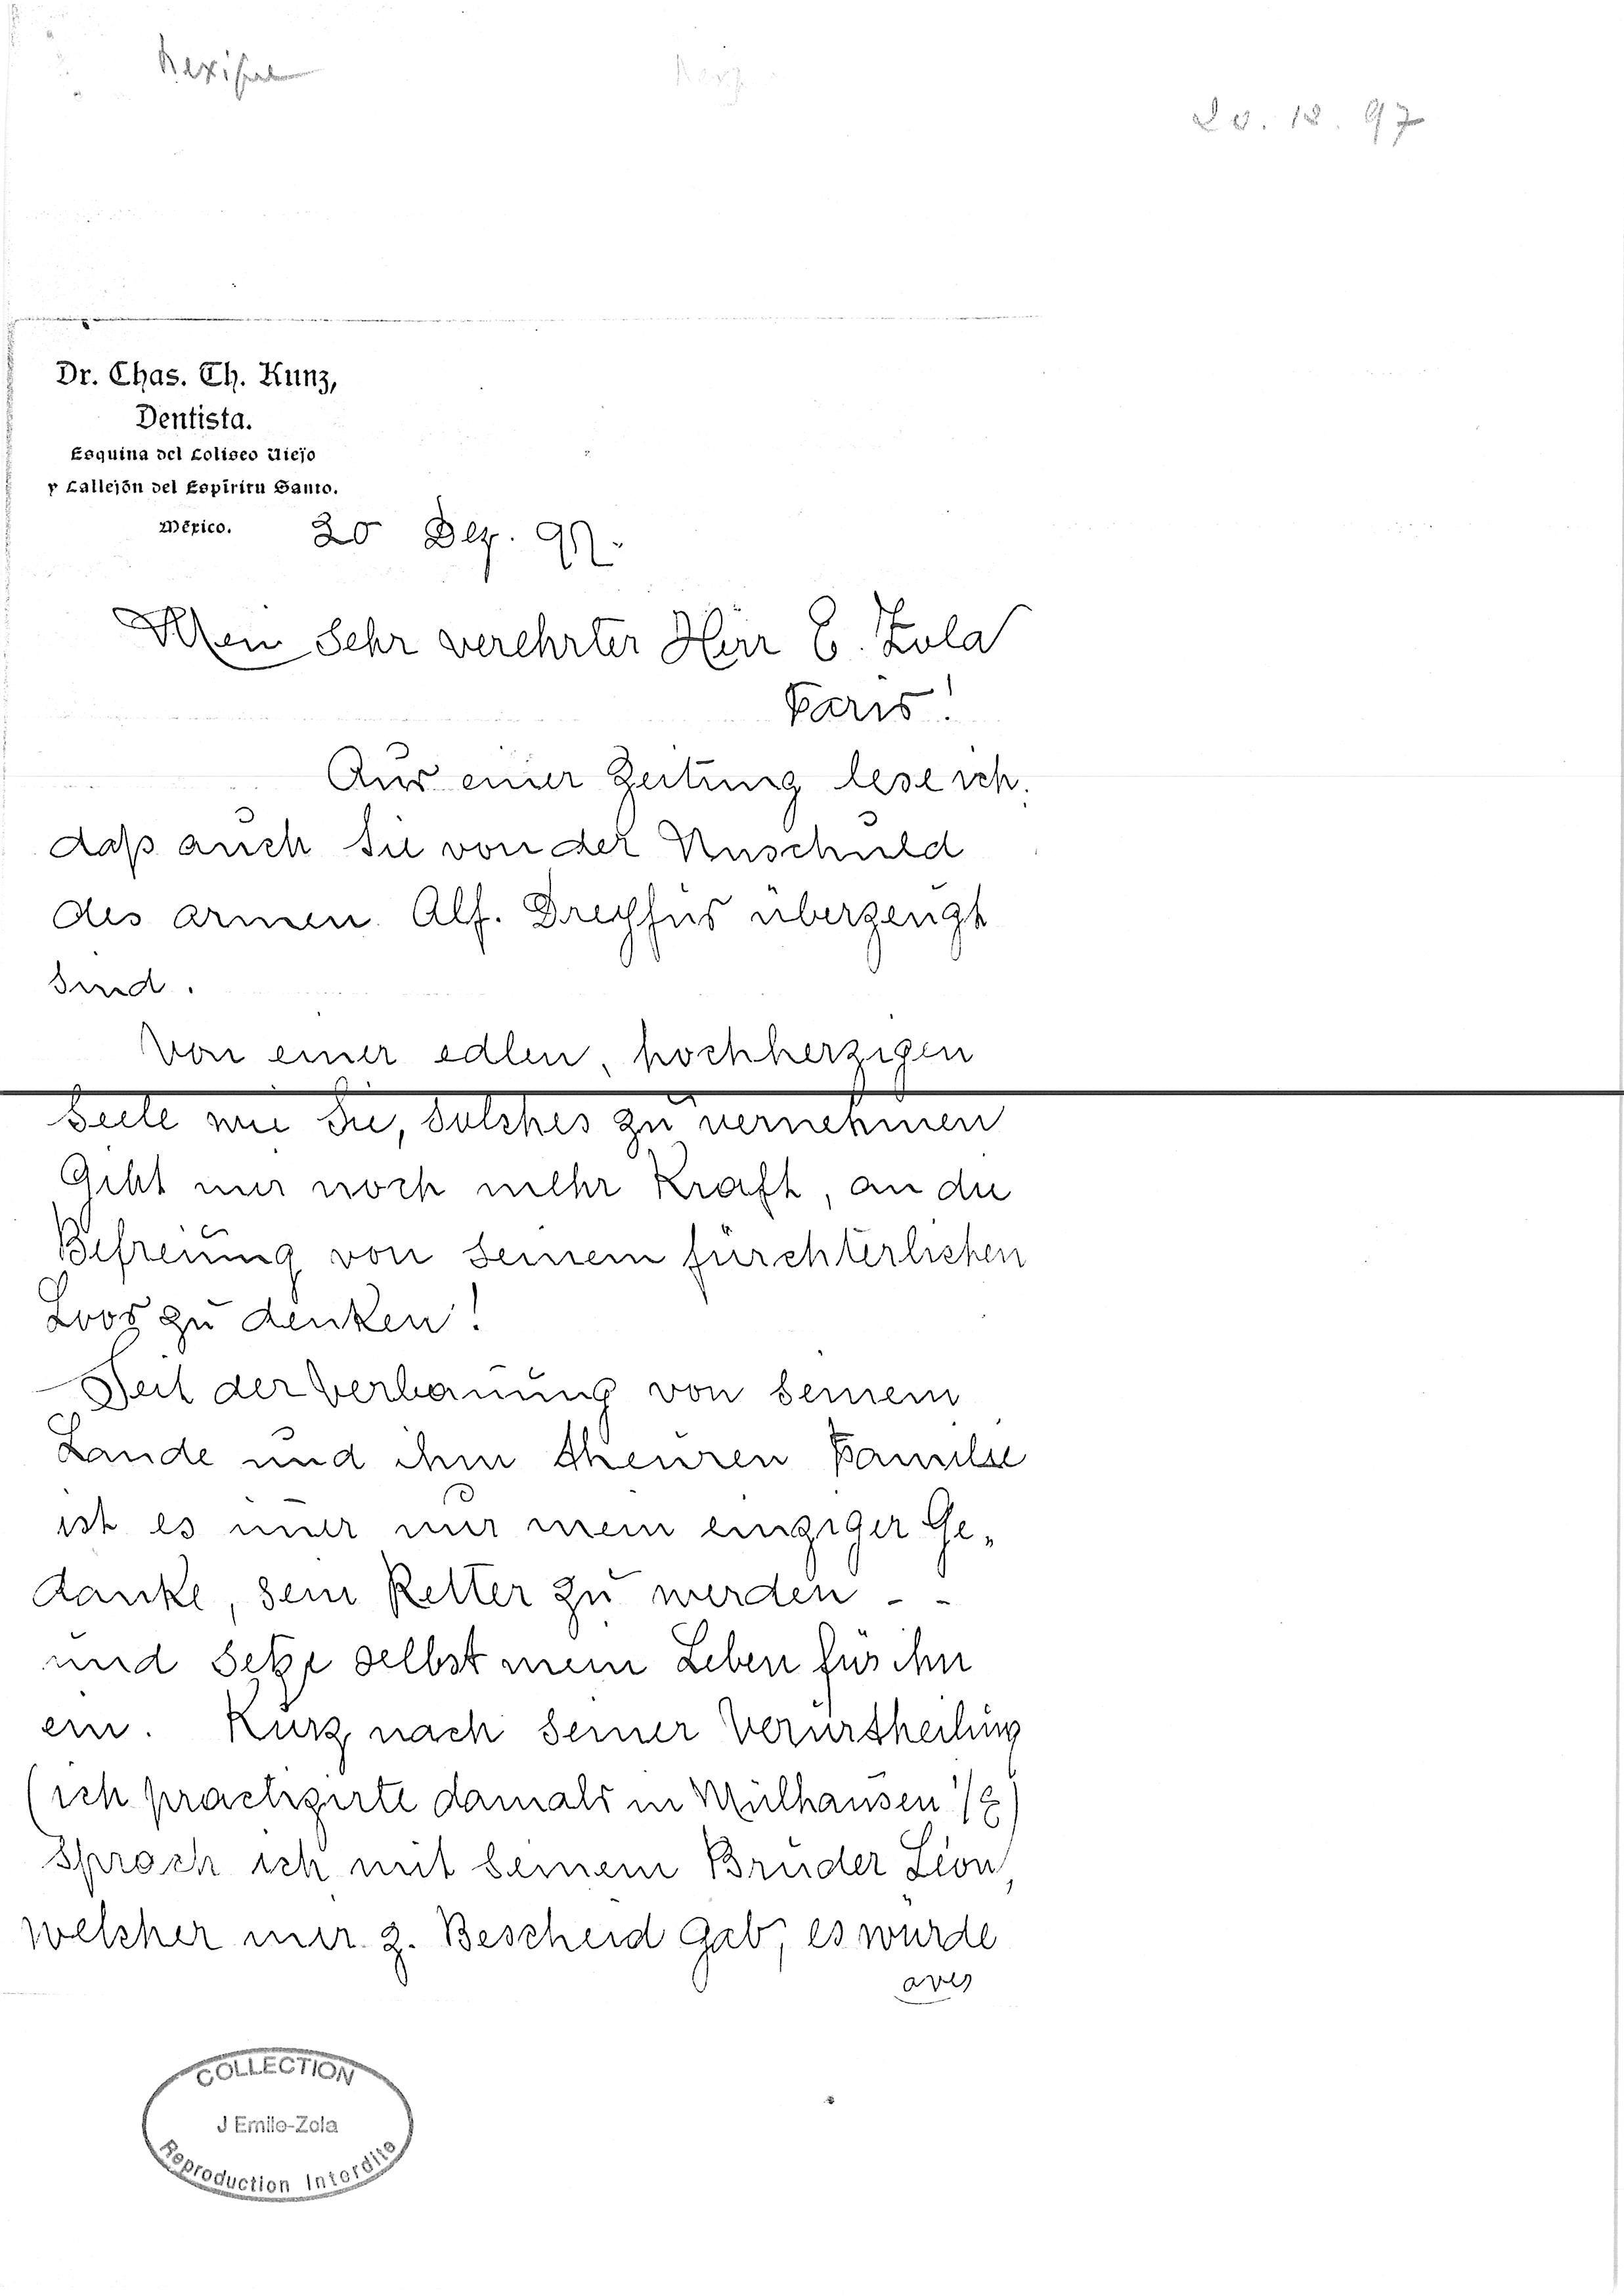 Mexique
20. 12. 97
Dr. Chas. Th. Kunz,
Dentista.
Esquina del Coliseo Viejo
y Callejón del Espíritu Santo.
México.
20 Dez. 97.
Mein Sehr verehrter Herr E. Zola
Paris!
Aus einer Zeitung lese ich,
daß auch Sie von der Unschuld
des armen Alf. Dreyfus überzeugt
sind.
Von einer edlen, hochherzigen
Seele wie Sie, solches zu vernehmen
Gibt mir noch mehr Kraft, an die
Befreiung von seinem fürchterlichen
Loos zu denken!
Seit der Verbannung von seinem
Lande und ihm theuren Familie
ist es im̄er nur mein einziger Ge„
danke, sein Retter zu werden - -
und setze selbst mein Leben für ihn
ein. Kurz nach seiner Verurtheilung
(ich practizirte damals in Mülhausen i/E)
sprach ich mit seinem Bruder Léon,
welcher mir z. Bescheid gab, es würde
over
COLLECTION
J Emile-Zola
Reproduction Interdite